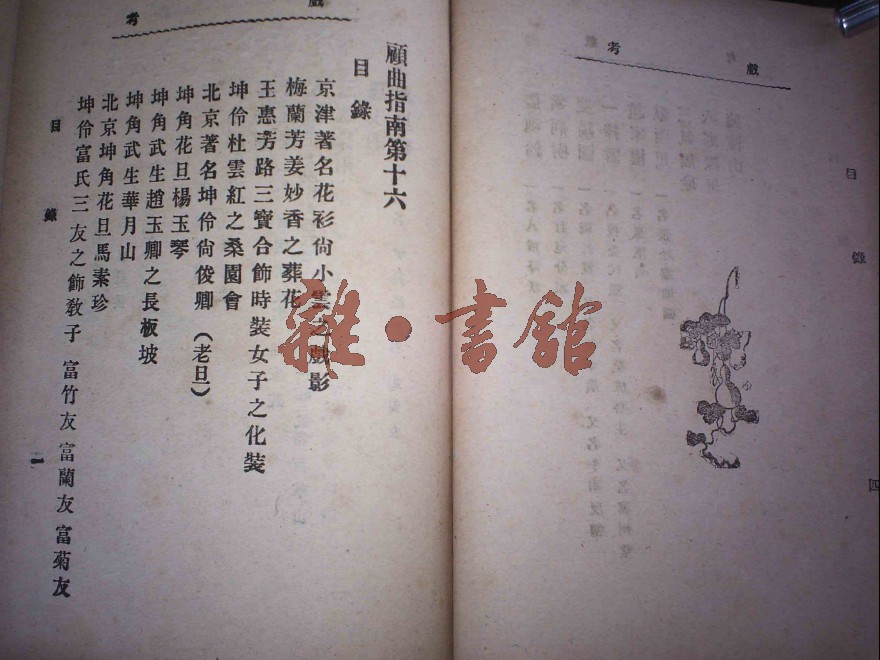 戲考
目錄
四
戲考
顧曲指南第十六
目錄
京津著名花衫尙小雲之戲影
梅蘭芳姜妙香之葬花
王惠芳路三寶合飾時裝女子之化裝
坤伶杜雲紅之桑園會
北京著名坤伶尙俊卿(老旦)
坤角花旦楊玉琴
坤角武生趙玉卿之長板坡
坤角武生華月山
北京坤角花旦馬素珍
坤伶富氏三友之飾敎子 富竹友 富蘭友 富菊友
目錄
一
雜·書館